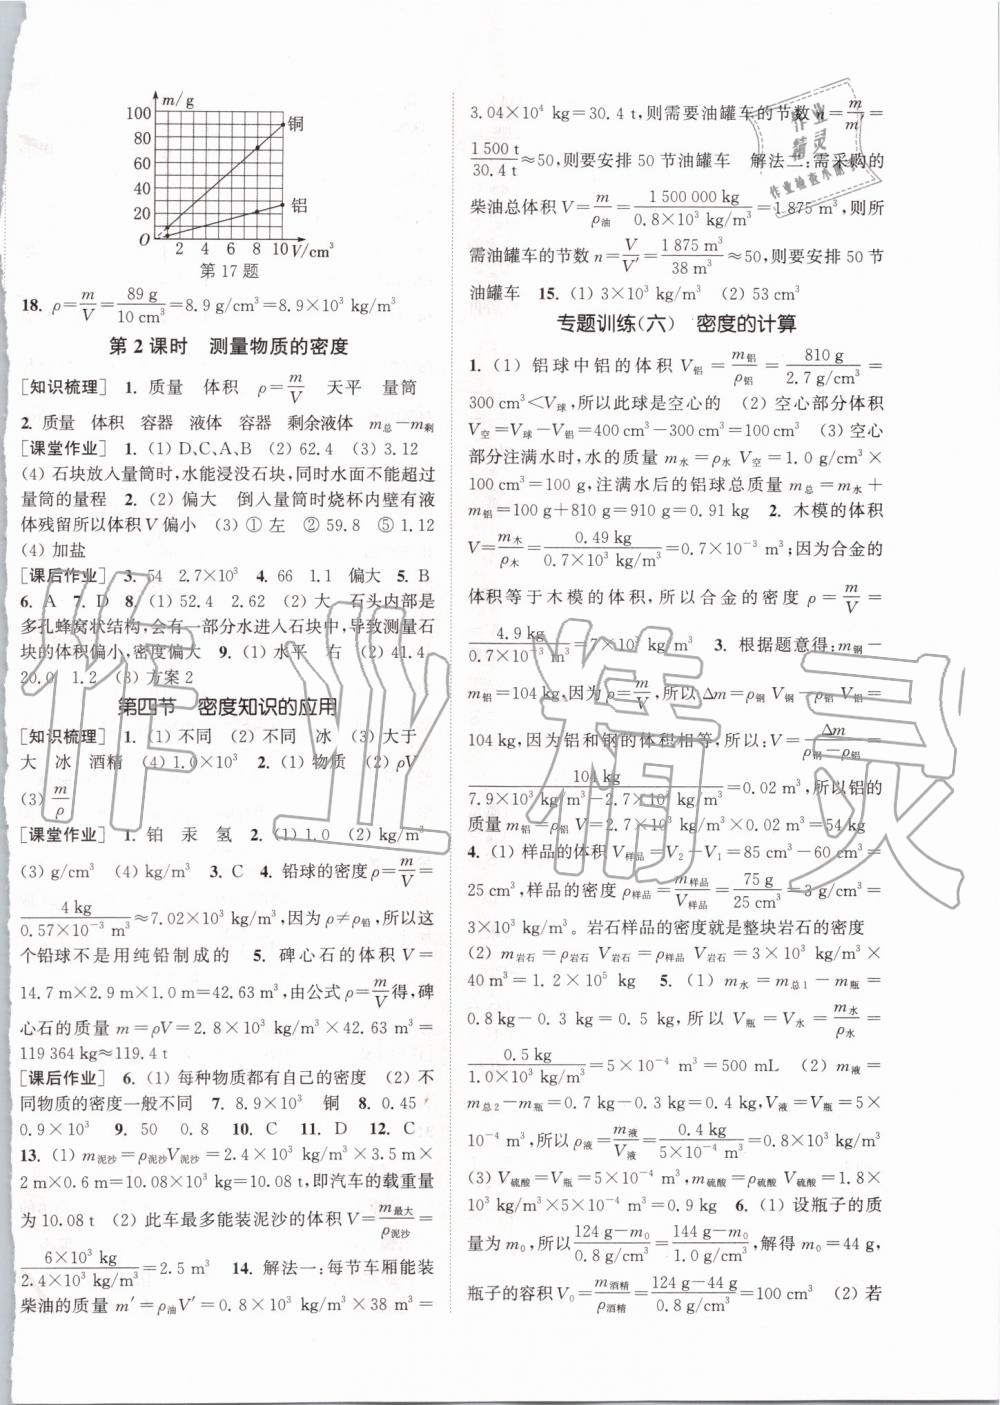 m/g
100
80
60
40
20
O
2 4 6 8 10 V/cm³
铜
铝
第17题
18. ρ=m/V=89 g/10 cm³=8.9 g/cm³=8.9×10³ kg/m³
第2课时 测量物质的密度
[知识梳理] 1. 质量 体积 ρ=m/V 天平 量筒
2. 质量 体积 容器 液体 容器 剩余液体 m总-m剩
[课堂作业] 1. (1) D、C、A、B (2) 62.4 (3) 3.12
(4) 石块放入量筒时,水能浸没石块,同时水面不能超过
量筒的量程 2. (2) 偏大 倒入量筒时烧杯内壁有液
体残留所以体积V偏小 (3) ① 左 ② 59.8 ⑤ 1.12
(4) 加盐
[课后作业] 3. 54 2.7×10³ 4. 66 1.1 偏大 5. B
6. A 7. D 8. (1) 52.4 2.62 (2) 大 石头内部是
多孔蜂窝状结构,会有一部分水进入石块中,导致测量石
块的体积偏小,密度偏大 9. (1) 水平 右 (2) 41.4
20.0 1.2 (3) 方案2
第四节 密度知识的应用
[知识梳理] 1. (1) 不同 (2) 不同 冰 (3) 大于
大 冰 酒精 (4) 1.0×10³ 2. (1) 物质 (2) ρV
(3) m/ρ
[课堂作业] 1. 铂 汞 氢 2. (1) 1.0 (2) kg/m³
(3) g/cm³ (4) kg/m³ 3. C 4. 铅球的密度ρ=m/V=
4 kg/0.57×10⁻³ m³≈7.02×10³ kg/m³,因为ρ≠ρ铅,所以这
个铅球不是用纯铅制成的 5. 碑心石的体积V=
14.7 m×2.9 m×1.0 m=42.63 m³,由公式ρ=m/V得,碑
心石的质量m=ρV=2.8×10³ kg/m³×42.63 m³=
119 364 kg≈119.4 t
[课后作业] 6. (1) 每种物质都有自己的密度 (2) 不
同物质的密度一般不同 7. 8.9×10³ 铜 8. 0.45
0.9×10³ 9. 50 0.8 10. C 11. D 12. C
13. (1) m泥沙=ρ泥沙V泥沙=2.4×10³ kg/m³×3.5 m×
2 m×0.6 m=10.08×10³ kg=10.08 t,即汽车的载重量
为10.08 t (2) 此车最多能装泥沙的体积V=m最大/ρ泥沙=
6×10³ kg/2.4×10³ kg/m³=2.5 m³ 14. 解法一:每节车厢能装
柴油的质量m′=ρ油V′=0.8×10³ kg/m³×38 m³=
3.04×10⁴ kg=30.4 t,则需要油罐车的节数n=m/m′=
1 500 t/30.4 t≈50,则要安排50节油罐车 解法二:需采购的
柴油总体积V=m/ρ油=1 500 000 kg/0.8×10³ kg/m³=1 875 m³,则所
需油罐车的节数n=V/V′=1 875 m³/38 m³≈50,则要安排50节
油罐车 15. (1) 3×10³ kg/m³ (2) 53 cm³
专题训练(六) 密度的计算
1. (1) 铝球中铝的体积V铝=m铝/ρ铝=810 g/2.7 g/cm³=
300 cm³<V球,所以此球是空心的 (2) 空心部分体积
V空=V球-V铝=400 cm³-300 cm³=100 cm³ (3) 空心
部分注满水时,水的质量m水=ρ水 V空=1.0 g/cm³×
100 cm³=100 g,注满水后的铝球总质量m总=m水+
m铝=100 g+810 g=910 g=0.91 kg 2. 木模的体积
V=m木/ρ木=0.49 kg/0.7×10³ kg/m³=0.7×10⁻³ m³;因为合金的
体积等于木模的体积,所以合金的密度ρ=m/V=
4.9 kg/0.7×10⁻³ m³=7×10³ kg/m³ 3. 根据题意得:m钢-
m铝=104 kg,因为ρ=m/V,所以Δm=ρ钢 V钢-ρ铝 V铝=
104 kg,因为铝和钢的体积相等,所以:V=Δm/ρ钢-ρ铝=
104 kg/7.9×10³ kg/m³-2.7×10³ kg/m³=0.02 m³,所以铝的
质量m铝=ρ铝 V=2.7×10³ kg/m³×0.02 m³=54 kg
4. (1) 样品的体积V样品=V₂-V₁=85 cm³-60 cm³=
25 cm³,样品的密度ρ样品=m样品/V样品=75 g/25 cm³=3 g/cm³=
3×10³ kg/m³。岩石样品的密度就是整块岩石的密度
(2) m岩石=ρ岩石 V岩石=ρ样品 V岩石=3×10³ kg/m³×
40 m³=1.2×10⁵ kg 5. (1) m水=m总1-m瓶=
0.8 kg-0.3 kg=0.5 kg,所以V瓶=V水=m水/ρ水=
0.5 kg/1.0×10³ kg/m³=5×10⁻⁴ m³=500 mL (2) m液=
m总2-m瓶=0.7 kg-0.3 kg=0.4 kg,V液=V瓶=5×
10⁻⁴ m³,所以ρ液=m液/V液=0.4 kg/5×10⁻⁴ m³=0.8×10³ kg/m³
(3) V硫酸=V瓶=5×10⁻⁴ m³,m硫酸=ρ硫酸 V硫酸=1.8×
10³ kg/m³×5×10⁻⁴ m³=0.9 kg 6. (1) 设瓶子的质
量为m₀,所以124 g-m₀/0.8 g/cm³=144 g-m₀/1.0 g/cm³,解得m₀=44 g,
瓶子的容积V₀=m酒精/ρ酒精=124 g-44 g/0.8 g/cm³=100 cm³ (2) 若
作业精灵
作业
精灵